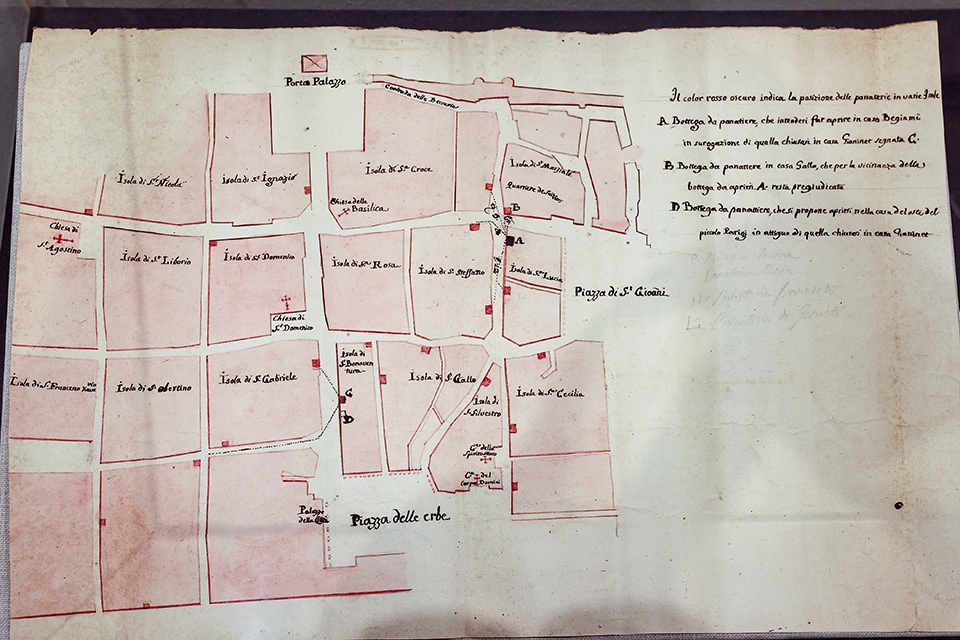 Porta Palazzo
Contrada della Beccaria
Isola di S.t Nicola
Isola di S.t Ignazio
Isola di S.ta Croce
Isola di S.t Marziale
Quartiere de
Chiesa della
Basilica
B
A
Chiesa di
S.t Agostino
Isola di S.t Liborio
Isola di S.t Domenico
Isola di S.ta Rosa
Isola di S.t Steffano
Isola di S.ta Lucia
Piazza di S.t Gioañi
Chiesa di
S.t Domenico
Isola di
S. Bonaven-
tura
Isola di S. Francesco
Isola di S.t Obertino
Isola di S.t Gabriele
Isola di S.t Gallo
Isola di S.ta Cecilia
Isola di
S. Silvestro
C
D
C.sa dello
Spirito Santo
C.sa del
Corpus Domini
Palazzo
della Città
Piazza delle erbe
Il color rosso oscuro indica la posizione delle panaterie in varie Isole
A Bottega da panatiere, che intenderi far aprire in casa Begiami
in surogazione di quella chiusasi in casa Ganinet segnata C.
B Bottega da panatiere in casa Gallo, che per la vicinanza della
bottega da aprirsi A. resta pregiudicata
D Bottega da panattiere, che si propone aprirsi nella casa del oste del
piccolo Parigi in attiguo di quella chiusasi in casa Ganinet